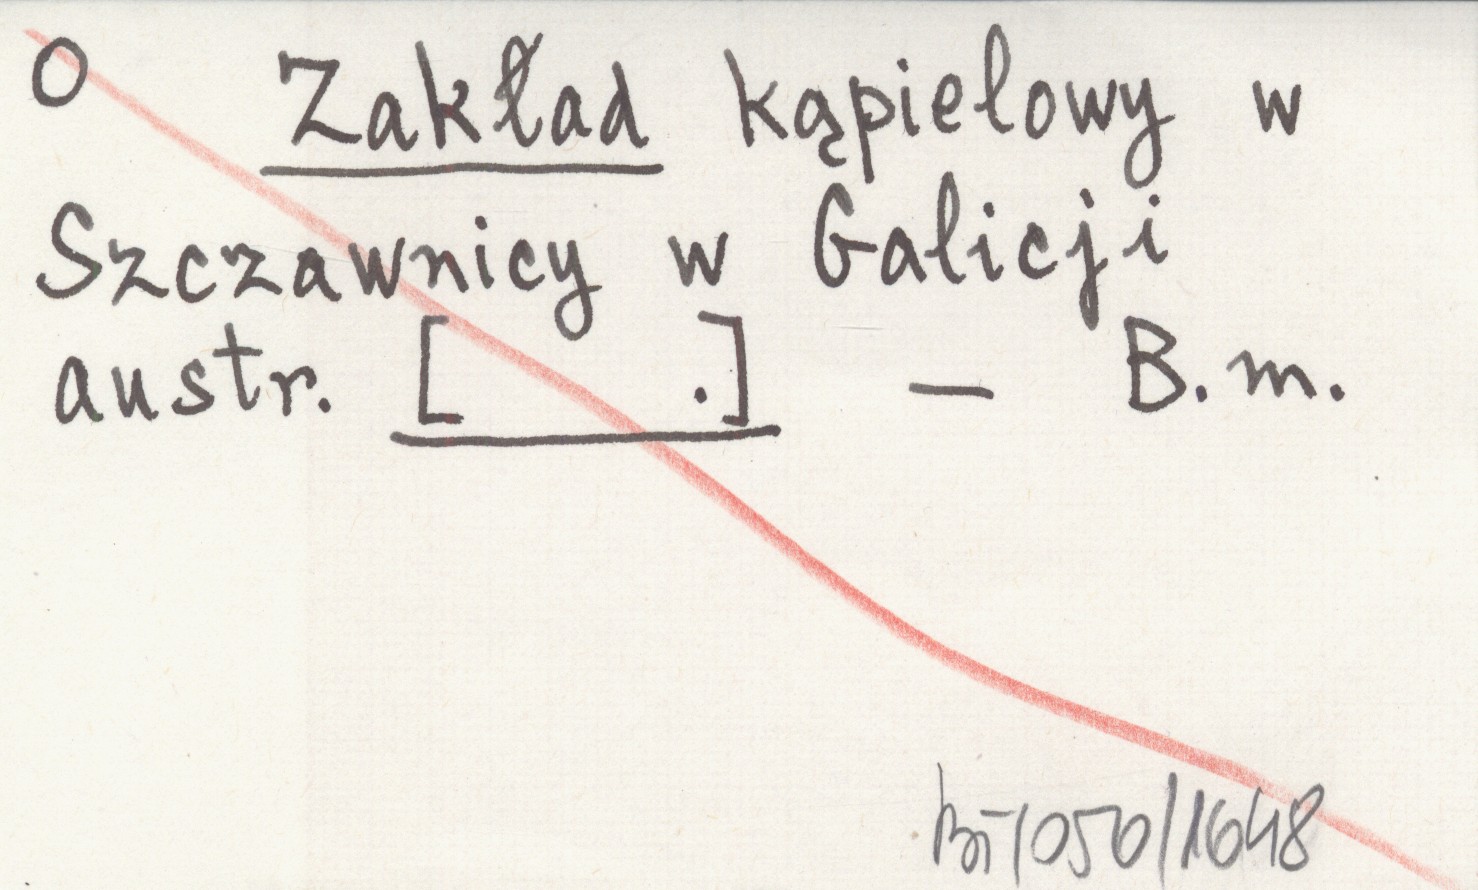 O Zakład kąpielowy w
Szczawnicy w Galicji
austr. [ .] — B.m.
BJ/050/1648